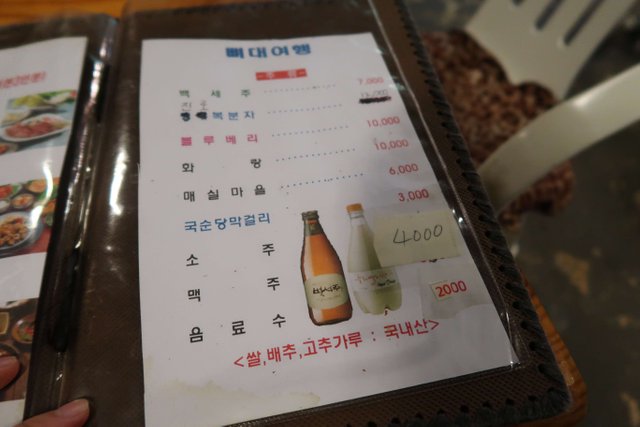 뼈대여행
백세주 7,000
진로 복분자
블루베리 10,000
화랑 10,000
매실마을 6,000
국순당막걸리 3,000
소주 4000
맥주
음료수 2000
백세주
<쌀,배추,고추가루 : 국내산>